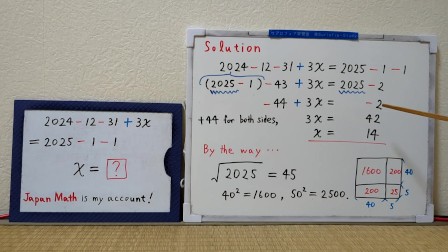 2024-12-31+3x
=2025-1-1
x=?
Japan Math is my account!
Solution
2024-12-31+3x=2025-1-1
(2025-1)-43+3x=2025-2
-44+3x=-2
+44 for both sides, 3x=42
x=14
By the way ...
√2025=45
40²=1600, 50²=2500.
1600 200 40
200 25 5
40 5